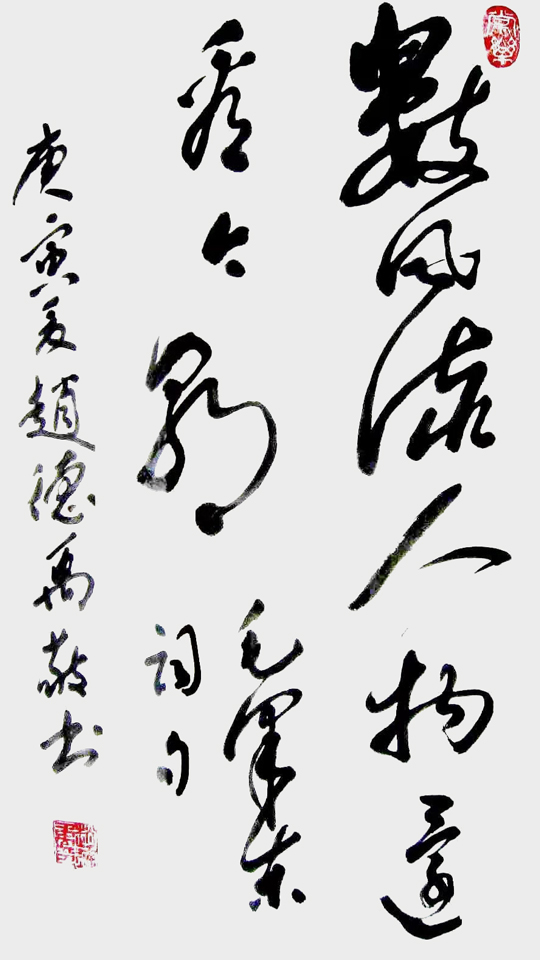 數風流人物還
看今朝
毛澤東
詞句
庚寅夏趙德禹敬书